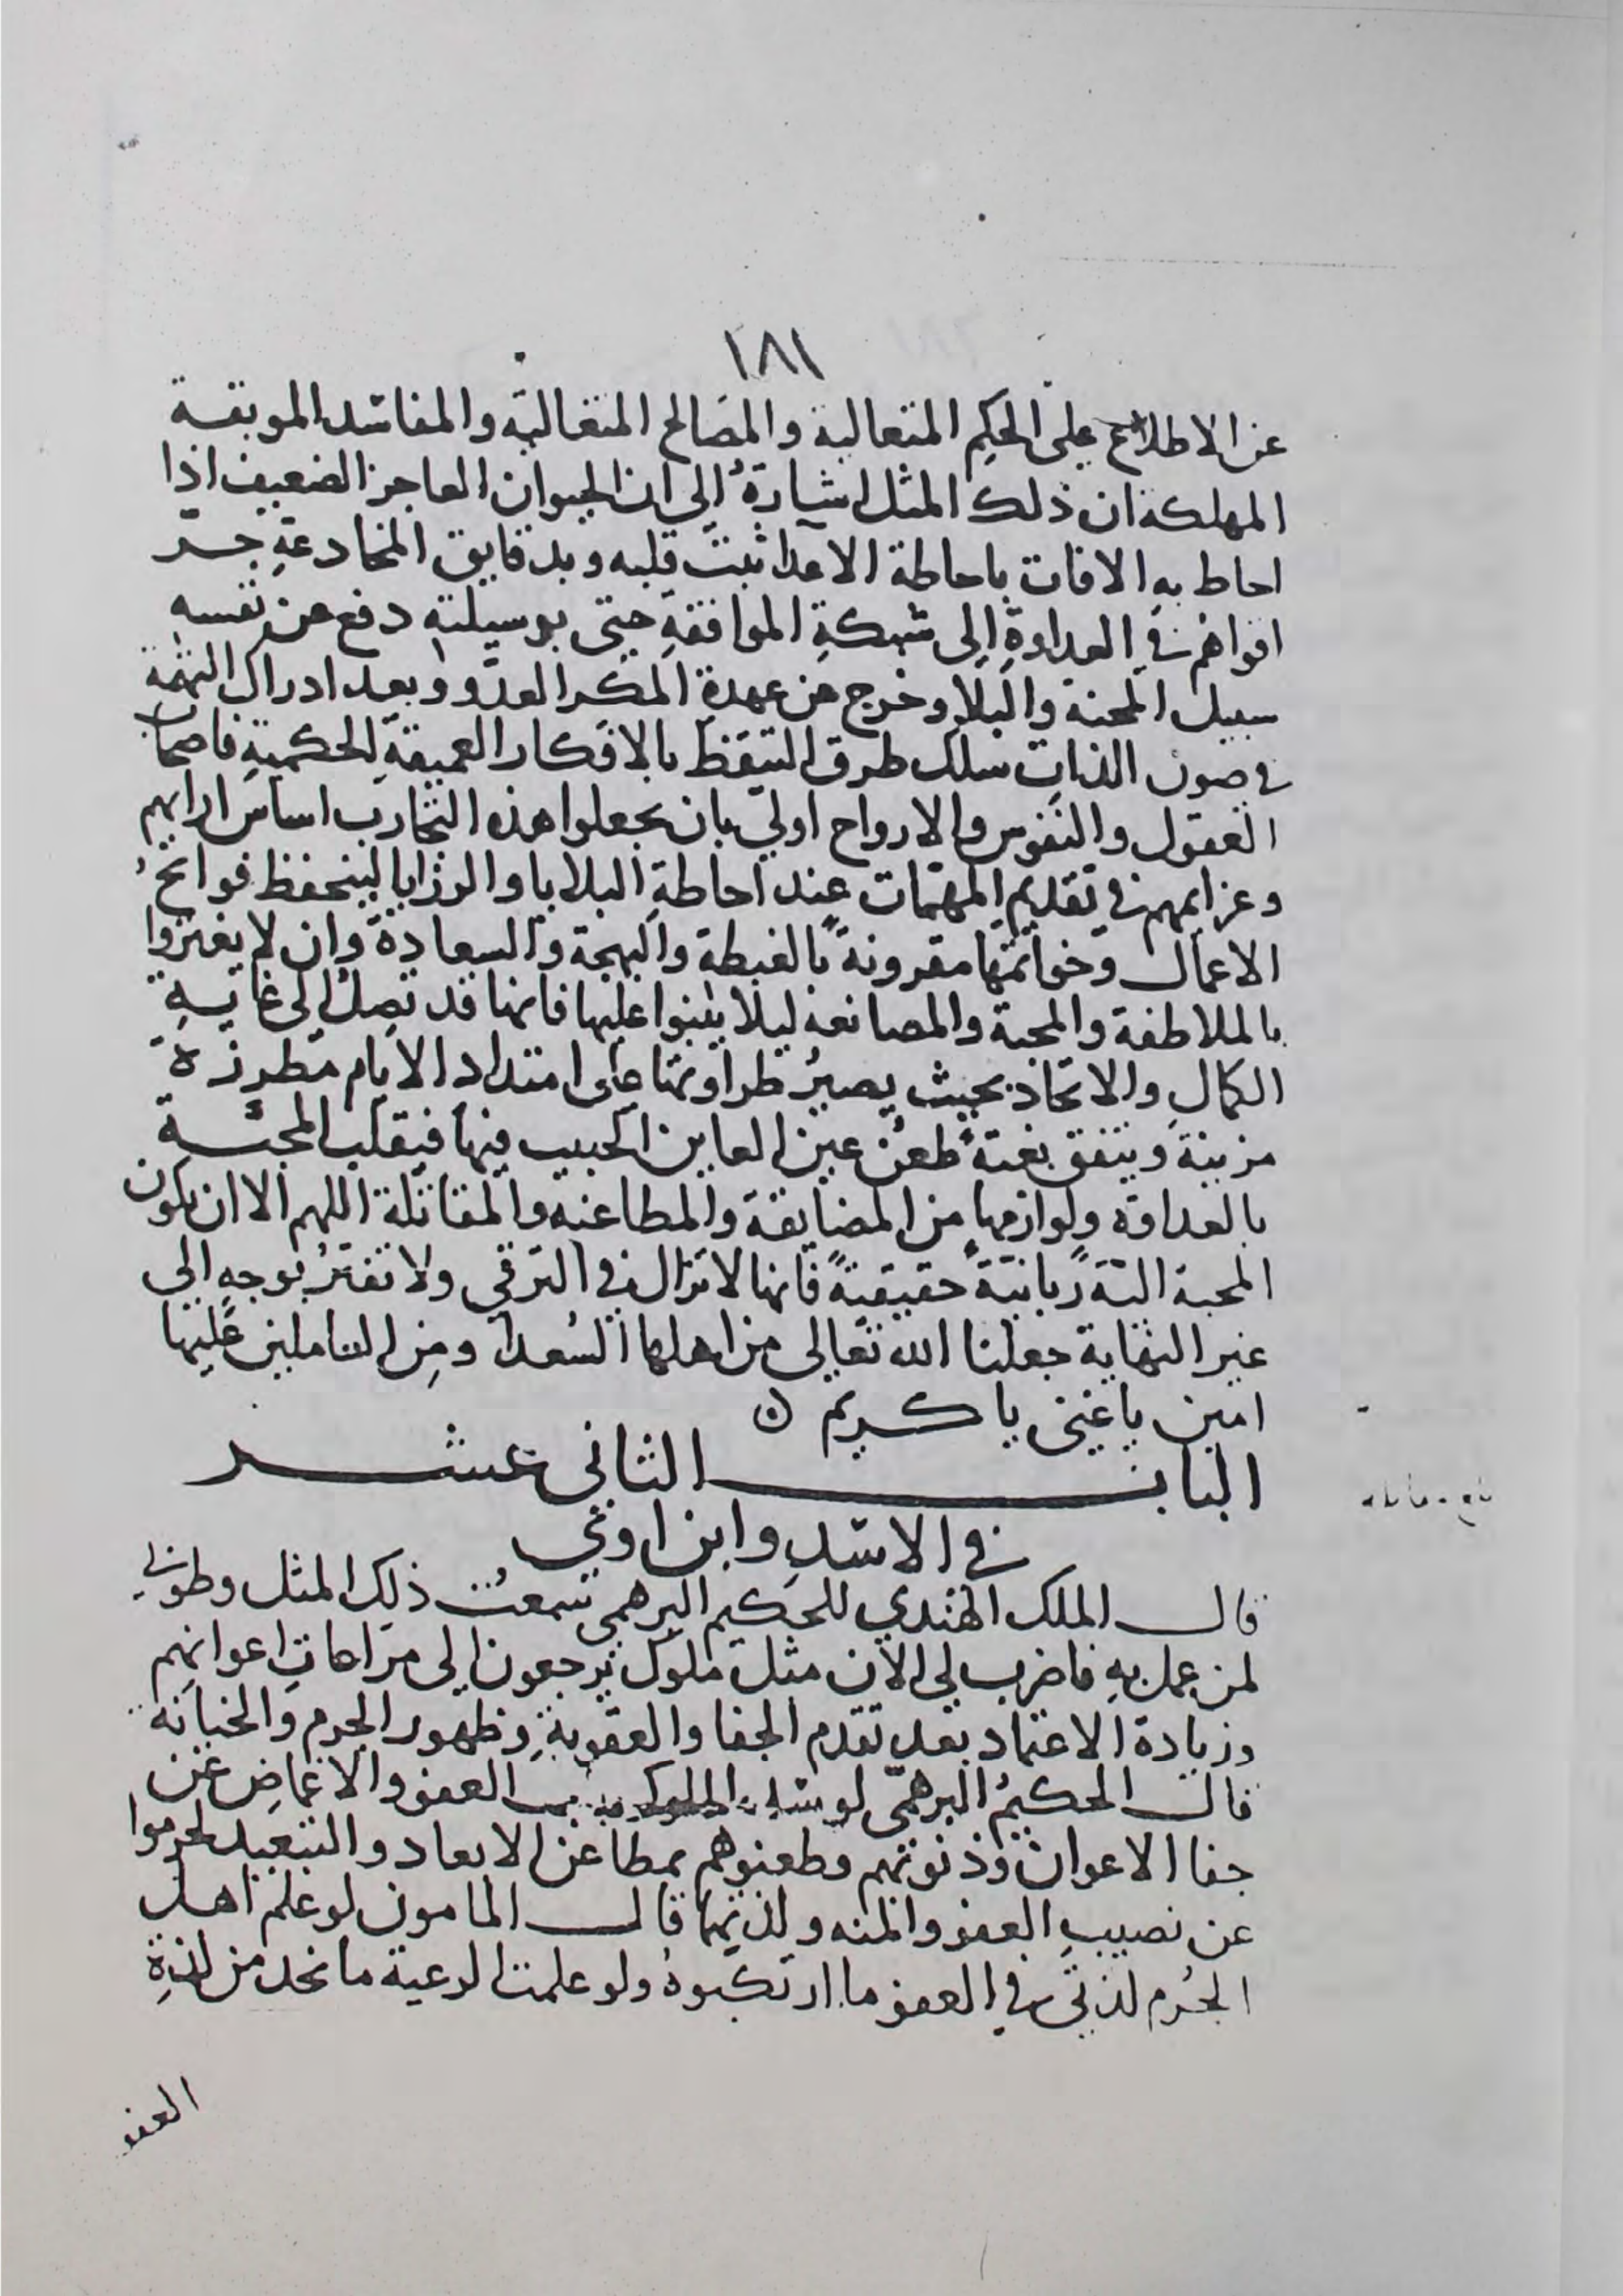 ١٨١
عن الاطلاع على الحِكم المتعالية والمصَالح المتغالية والمفاسد الموبقة
المهلكة ان ذلك المثل اشارةٌ إلى ان الحيوان العاجز الضعيف اذا
احاط بهِ الافات باحاطة الاعدا ثبتَ قلبه وبدقايق المخادعةِ جرّ
اقواهم في العداوةِ إِلى شبكةِ الموافقةِ حتى بوسيلته دفع عن نفسه
سبيل المحنة والبلا وخرج من عهدةِ المكر العدوّ وبعد ادراك التهمة
في صون الذات سلك طرق التيقظ بالافكار العميقةِ الحكميةِ فاصحاب
العقول والنفوس والارواح اولى بان يجعلوا هذه التجارب اساس ارايهم
وعزايمهم في تقديم المهمّات عند احاطةِ البلايا والرزايا لينحفظ فواتحُ
الاعمال وخواتمها مقرونةً بالغبطة والبهجة والسعادة وان لا يغترّوا
بالملاطفة والمحبة والمصانعة ليلا يبنوا عليها فانها قد تصِلُ إلى غايةِ
الكمالِ والاتحاد بحيث يصيرُ طراوتها على امتداد الايام مطرزة
مزينة ويتفق بغتةً طعنُ عين العاين الحبيب فيها فينقلب المحبّة
بالعداوة ولوازمها من المضايقة والمطاعنه والمقاتلة اللهم الا ان يكون
المحبة التّة ربانيّةً حقيقيّةً فانها لا تزال في الترقي ولا تفترُ بوجهٍ الى
غير النهاية جعلنا الله تعالى من اهلها السُعدا ومِن العاملين عليها
امين يا غنى يا كريم
البابُ الثانى عشر
في الاسَدِ وابن اوى
قال الملك الهندي للحكيم البرهمى سمعتُ ذلك المثل وطوبى
لمن عمل بهِ فاضرب لى الان مثلَ ملوك يرجعون إلى مراعاتِ اعوانِهم
وزيادة الاعتماد بعد تقدم الجفا والعقوبةِ وظهور الجرم والخيانة
قال الحكيمُ البرهمّى لو سَدّ الملوك العفو والاغماضِ عن
جفا الاعوان وذنوبهم وطعنوهم بمطاعن الابعاد والتبعيد لحرموا
عن نصيبِ العفو والمنه ولذتها قال المامون لو علم اهل
الجُرم لذتى في العفو ما ارتكبوهُ ولو علمت الرعية ما نجد من لذةِ
العفو